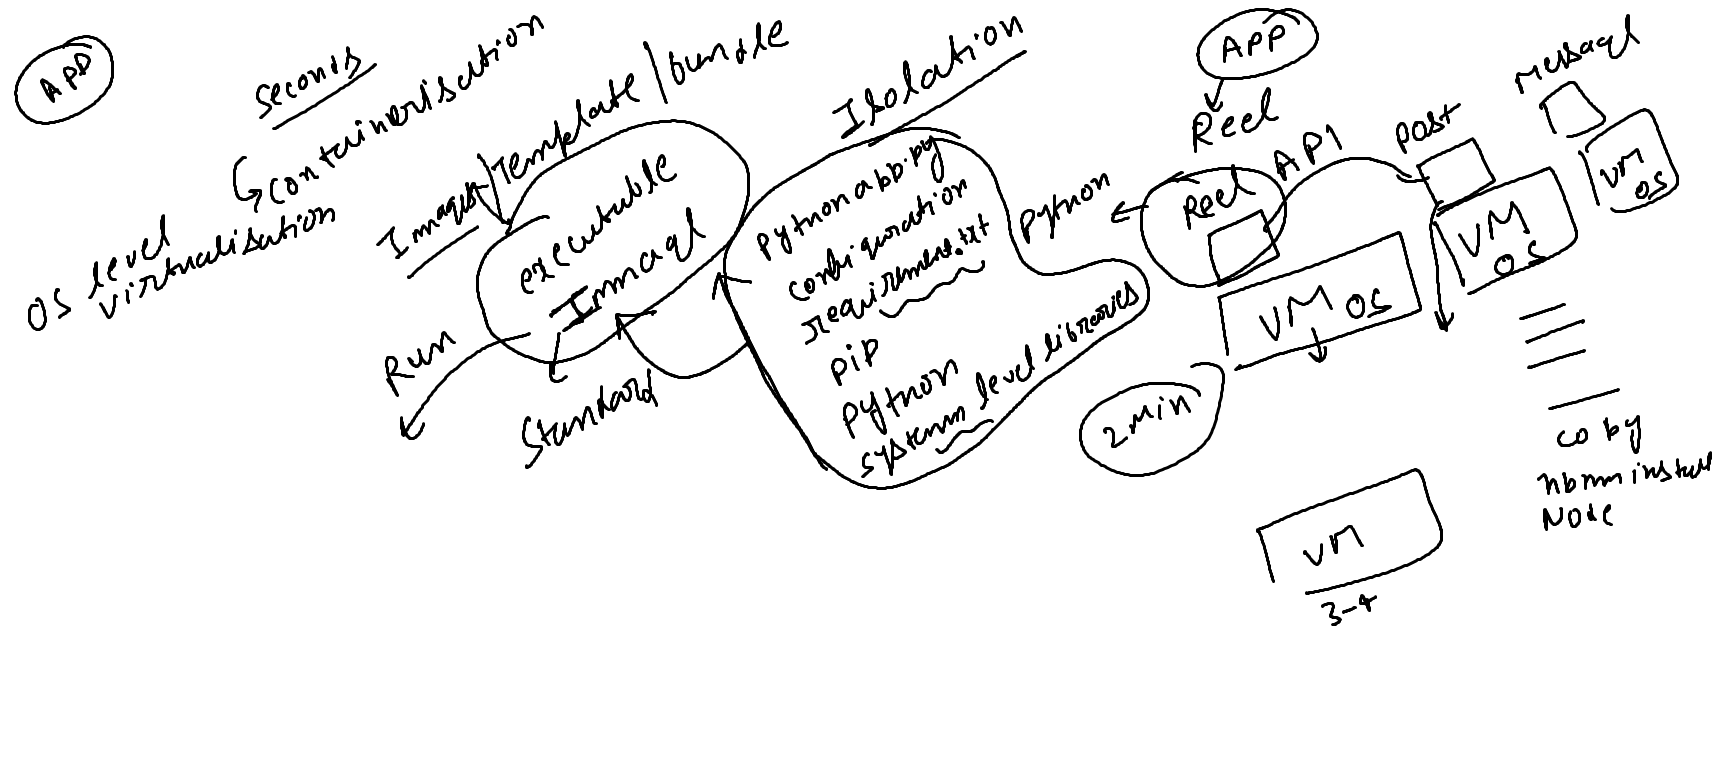 APP
seconds
containerisation
OS level
virtualisation
Images/Template/bundle
executable
Immage
Run
Standard
Isolation
Python app.py
configuration
requirement.txt
pip
python
system level libraries
APP
Reel
Python
Reel
API
VM OS
2 Min
Post
VM
OS
Message
VM
OS
copy
npm install
Node
VM
3-4